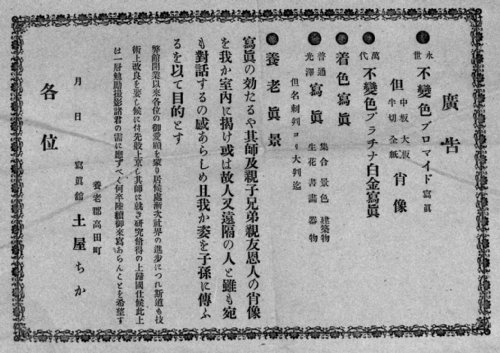 廣告
永世 不變色ブロマイド寫眞
但 中板 大版 半切 全紙 肖像
萬代 不變色プラチナ白金寫眞
着色寫眞
普通 光澤 寫眞 集合 景色 建築物 生花 書畵 器物
但名刺判ヨリ大判迄
養老眞景
寫眞の効たるや其師及親子兄弟親友恩人の肖像
を我か室內に揭け或は故人又遠隔の人と雖も宛
も對話するの感あらしめ且我か姿を子孫に傳ふ
るを以て目的とす
弊館開業以來各位の御愛顧を蒙り居候處漸次世界の進步につれ斯道も技
術上改良を要し候に付先般上京し其師に就き研究修得の上歸國仕候此上
は一層勉勵撮影諸君の需に應ずべく何卒陸續御來寫あらんことを希望す
月 日
養老郡高田町
寫眞舘 土屋ちか
各位